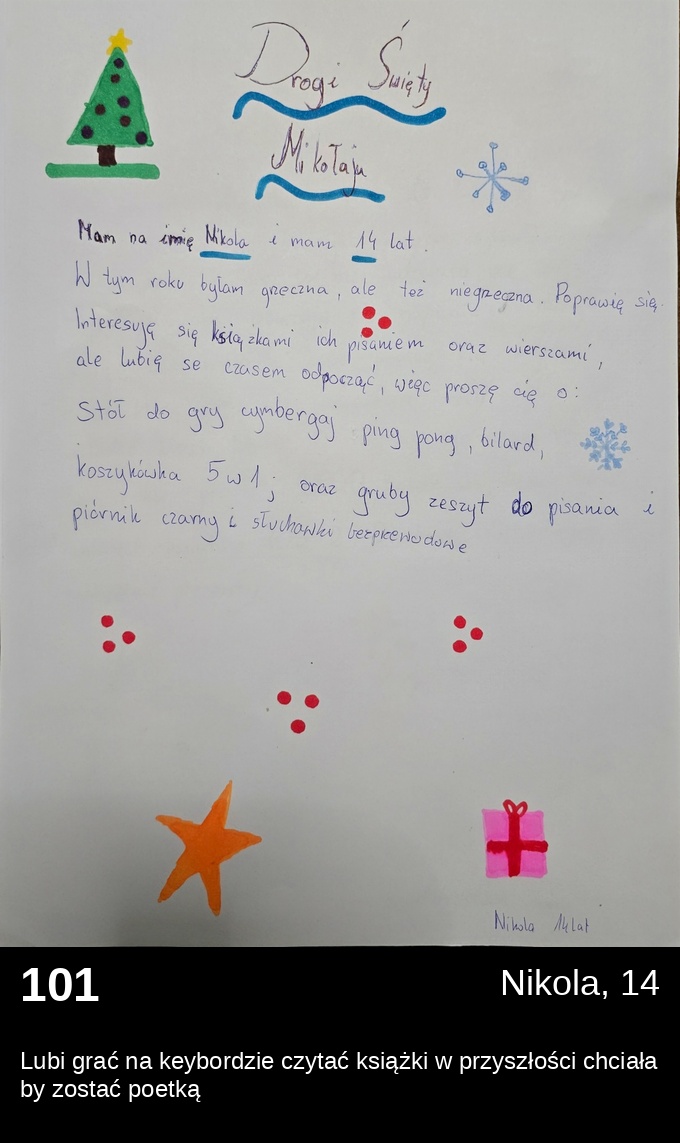 Drogi Święty
Mikołaju
Mam na imię Nikola i mam 14 lat.
W tym roku byłam grzeczna, ale też niegrzeczna. Poprawię się.
Interesuję się książkami ich pisaniem oraz wierszami,
ale lubię se czasem odpocząć, więc proszę cię o:
Stół do gry cymbergaj ping pong, bilard,
koszykówka 5 w 1; oraz gruby zeszyt do pisania i
piórnik czarny i słuchawki bezprewodowe
Nikola 14 lat
101
Nikola, 14
Lubi grać na keybordzie czytać książki w przyszłości chciała
by zostać poetką